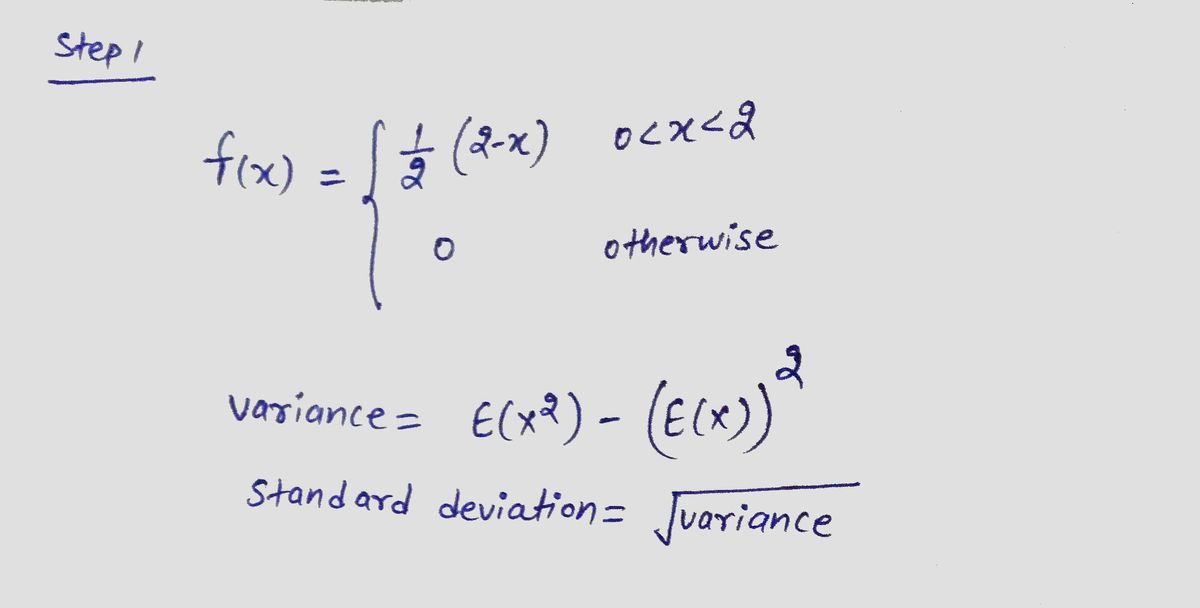 Step 1
f(x) = { 1/2 (2-x) 0<x<2
0 otherwise
variance = E(x²) - (E(x))²
Standard deviation = √variance